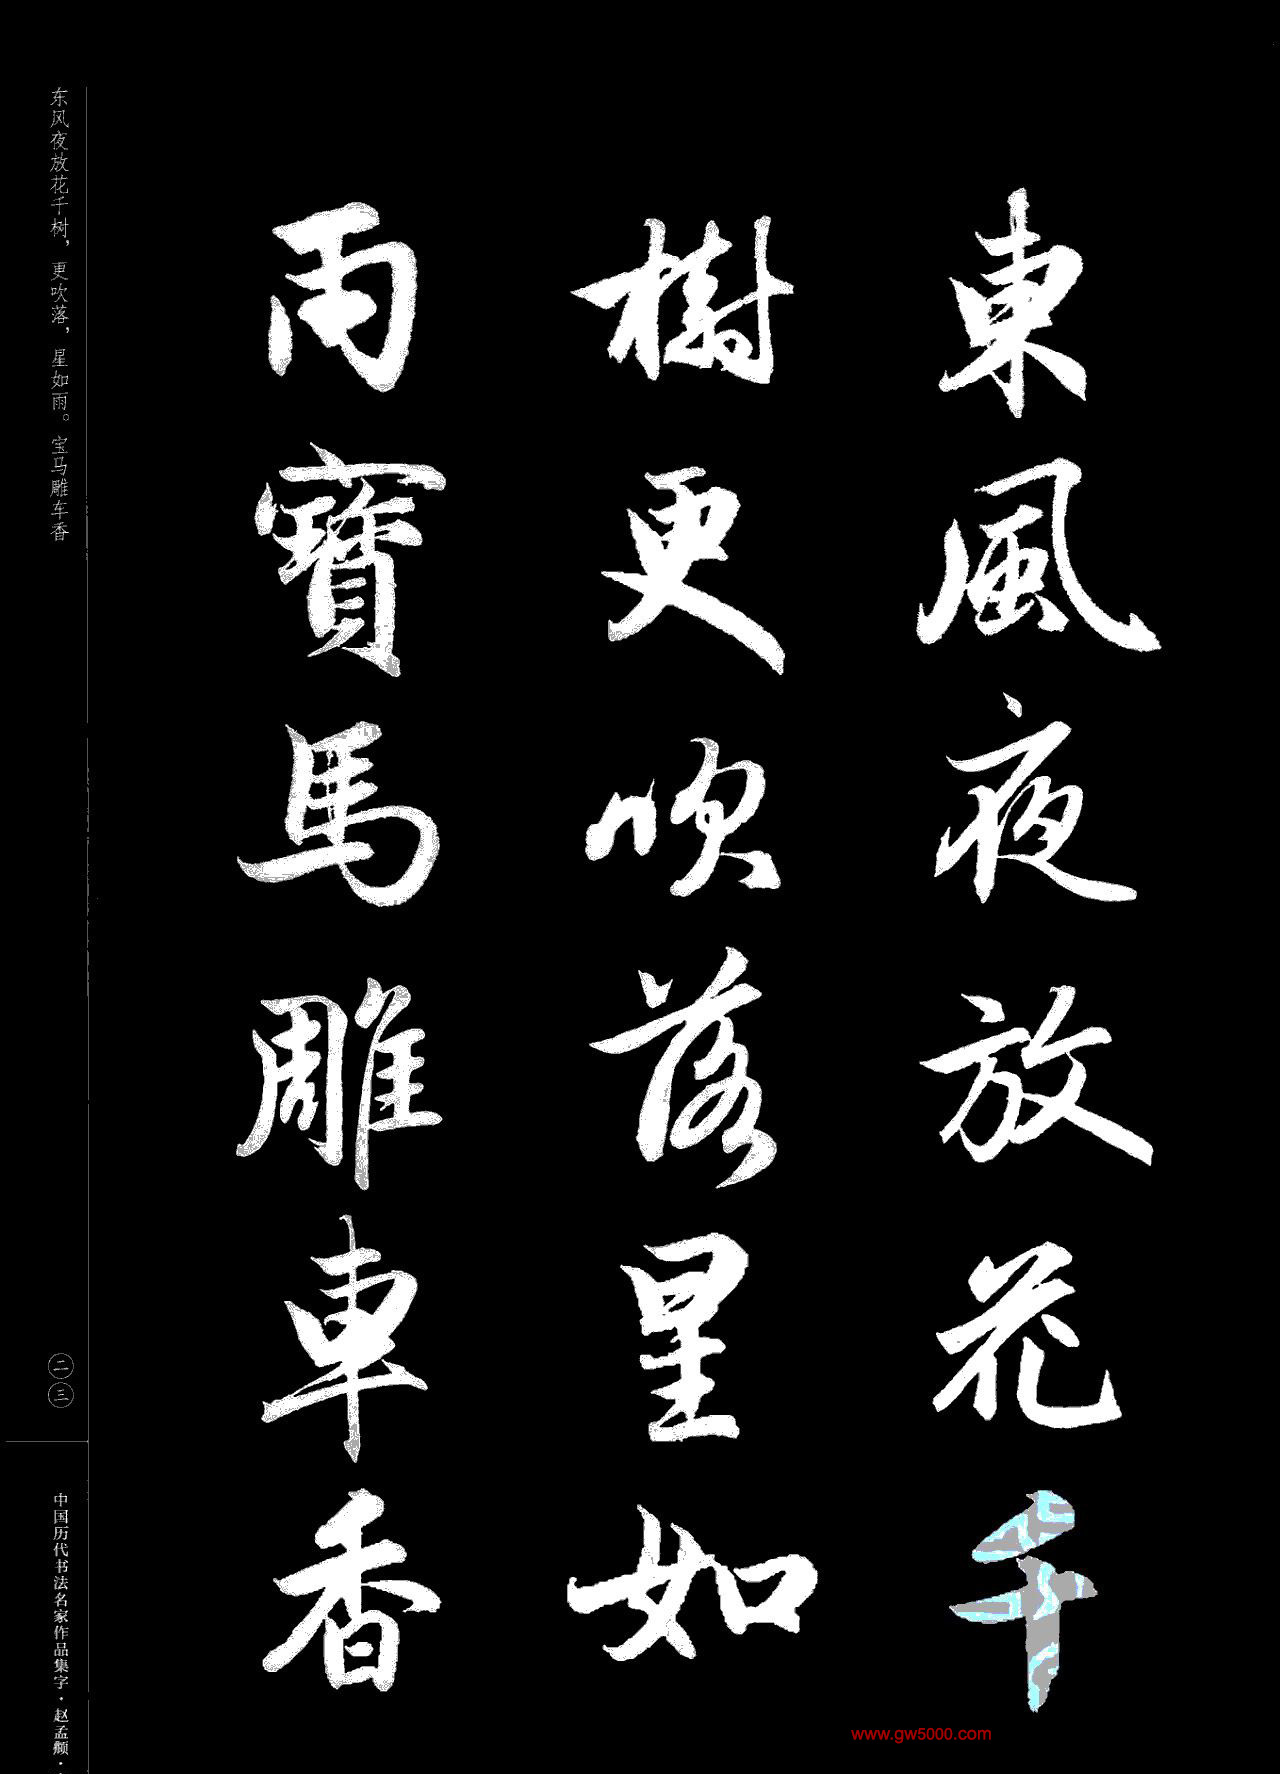 東風夜放花千
樹更吹落星如
雨寶馬雕車香
东风夜放花千树，更吹落，星如雨。宝马雕车香
二三
中国历代书法名家作品集字·赵孟頫·
www.gw5000.com